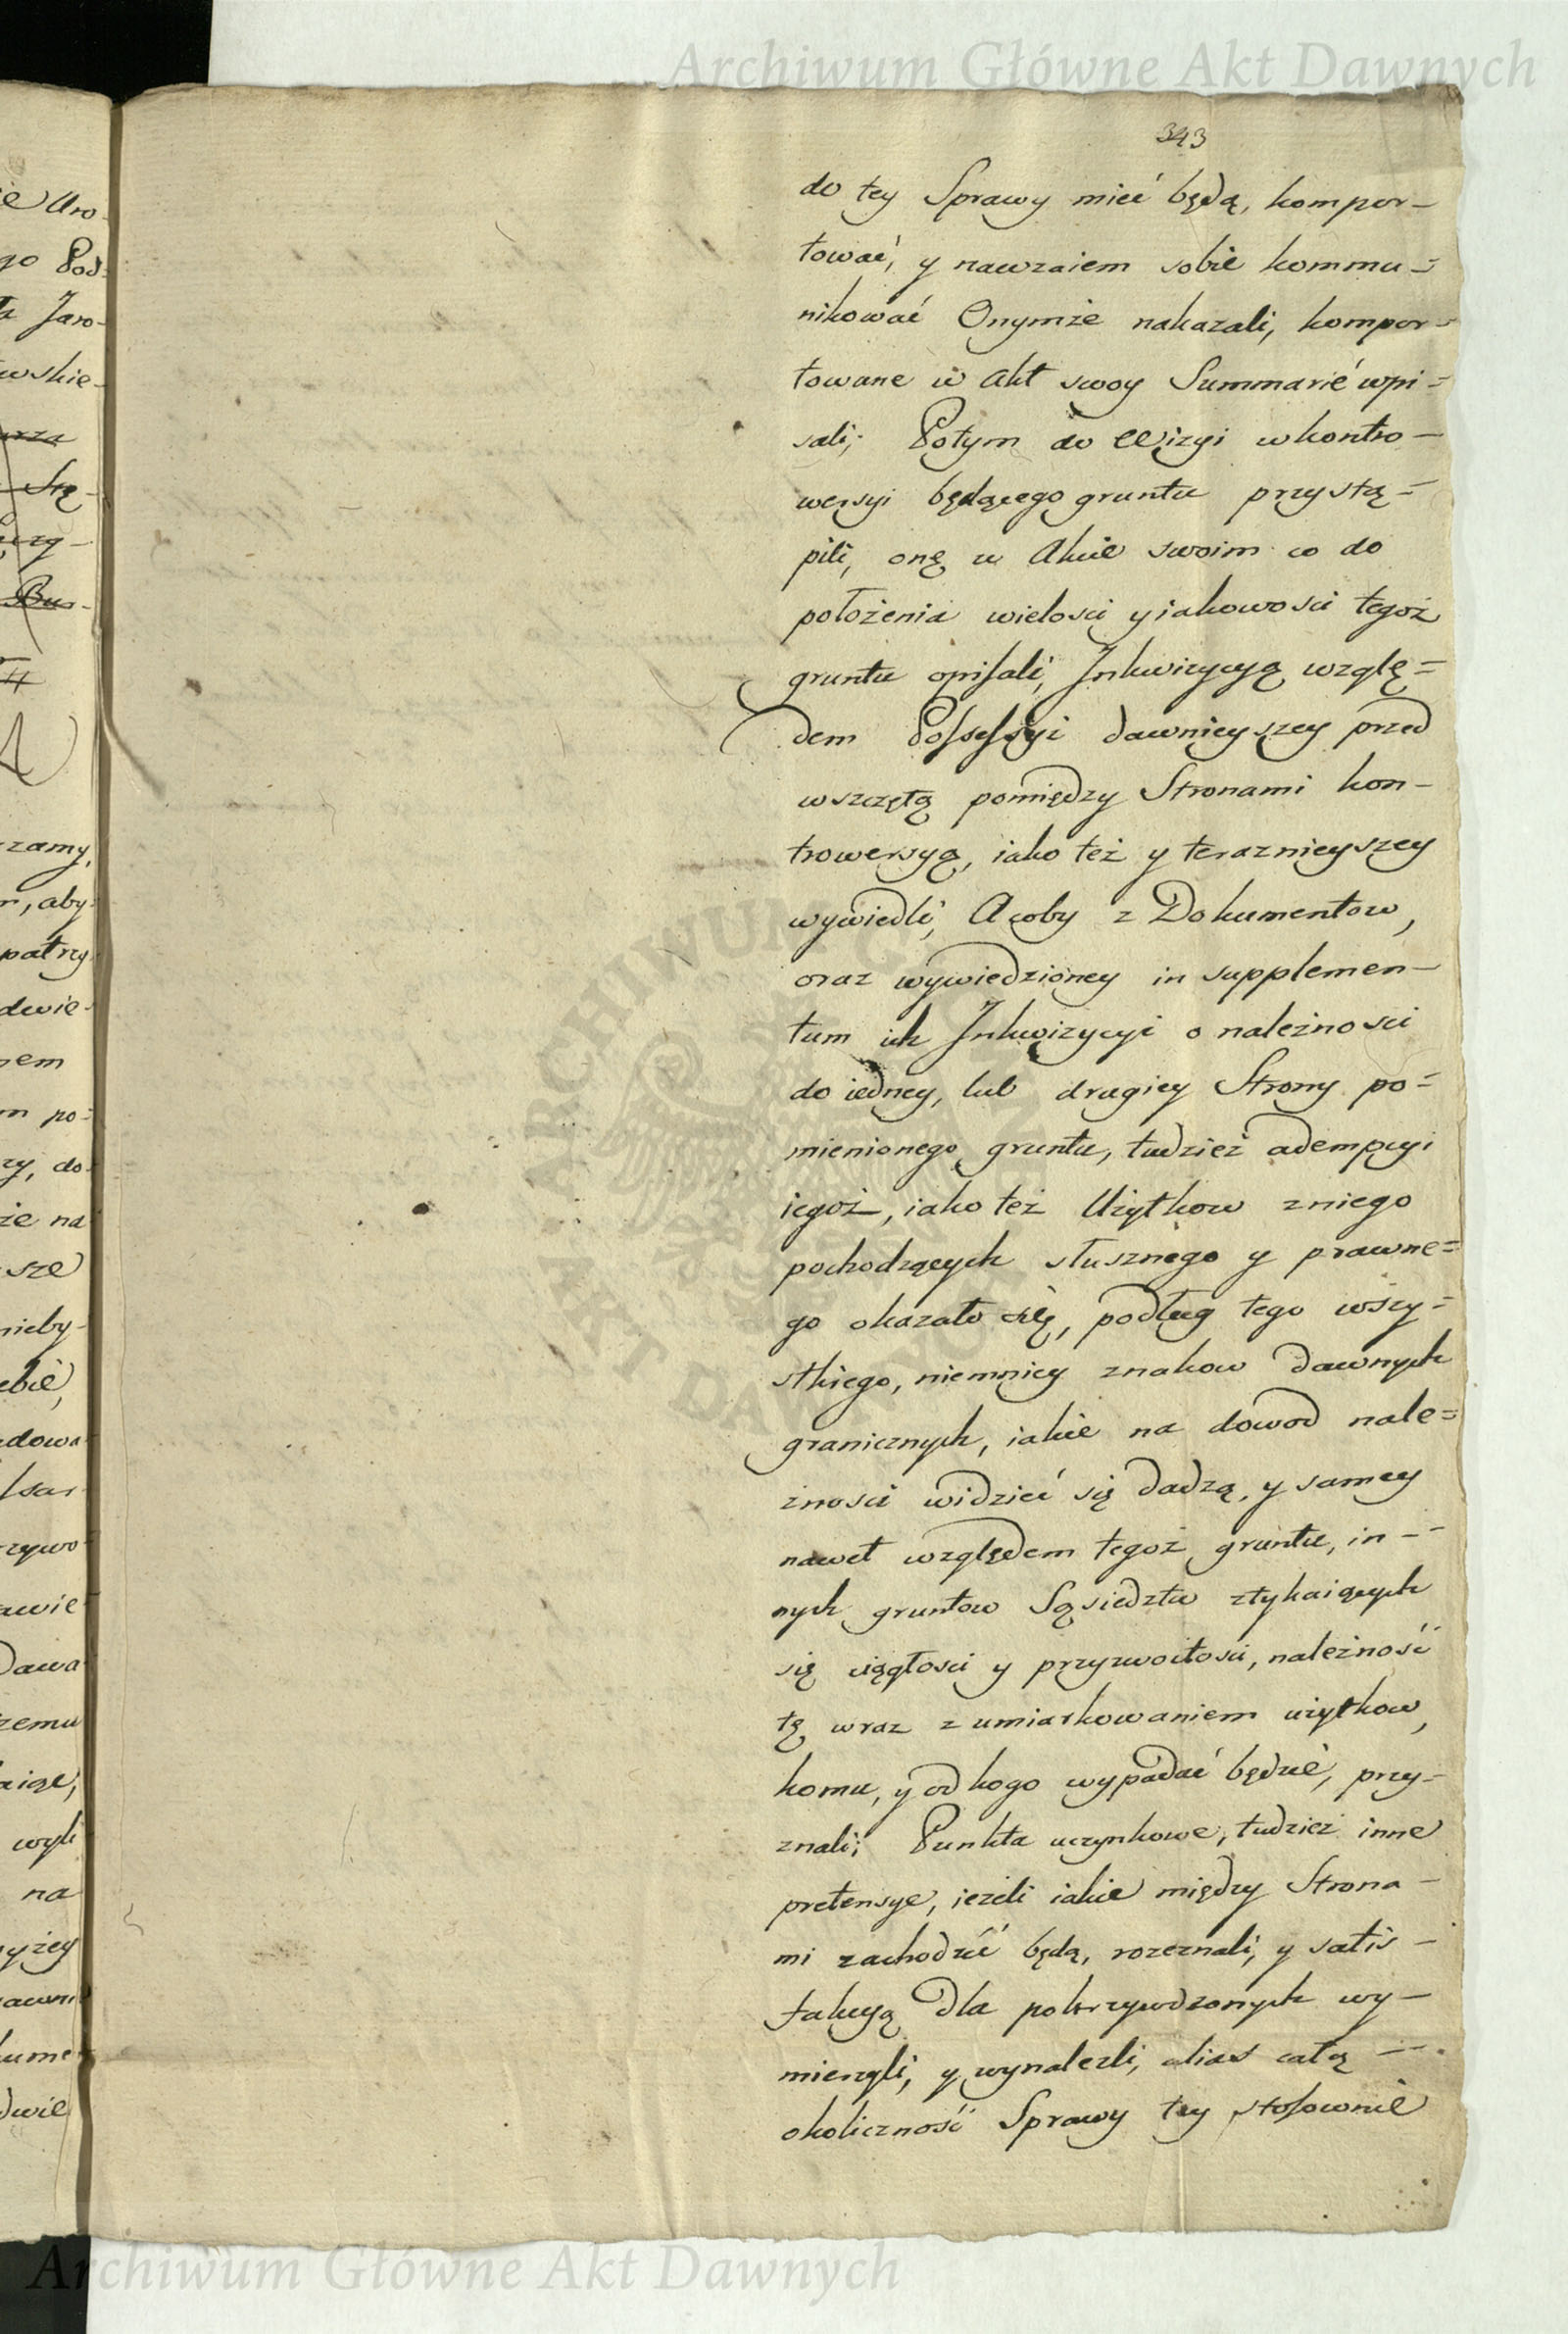 Archiwum Główne Akt Dawnych
343
do tey Sprawy mieć będą, kompor-
tować, y nawzaiem sobie kommu=
nikować Onymże nakazali, kompor=
towane w Akt swoy Summarie wpi=
sali; Potym do Wizyi w kontro-
wersyi będącego gruntu przystą=
pili, onę w Akcie swoim co do
położenia wielości y iakowości tegoż
gruntu opisali, Inkwizycyą wzglę=
dem Possessyi dawnieyszey przed
wszczętą pomiędzy Stronami kon-
trowersyą, iako też y teraznieyszey
wywiedli, A coby z Dokumentow,
oraz wywiedzioney in supplemen-
tum ich Inkwizycyi o należności
do iedney, lub drugiey Strony po=
mienionego gruntu, tudzież adempcyi
iegoż, iako też Użytkow z niego
pochodzących słusznego y prawne=
go okazało się, podług tego wszy=
stkiego, niemniey znakow dawnych
granicznych, iakie na dowod nale=
żności widzieć się dadzą, y samey
nawet względem tegoż gruntu, in--
nych gruntow Sąsiedztw ztykaiących
się ciągłości y przyzwoitości, należność
tę wraz z umiarkowaniem użytkow,
komu, y od kogo wypadać będzie, przy-
znali; Punkta uczynkowe, tudzież inne
pretensye, ieżeli iakie między Strona-
mi zachodzić będą, rozeznali, y satis-
fakcyą dla pokrzywdzonych wy-
mierzyli, y wynalezli, alias całą -
okoliczność Sprawy tey stosownie
ARCHIWUM GŁÓWNE AKT DAWNYCH
Archiwum Główne Akt Dawnych